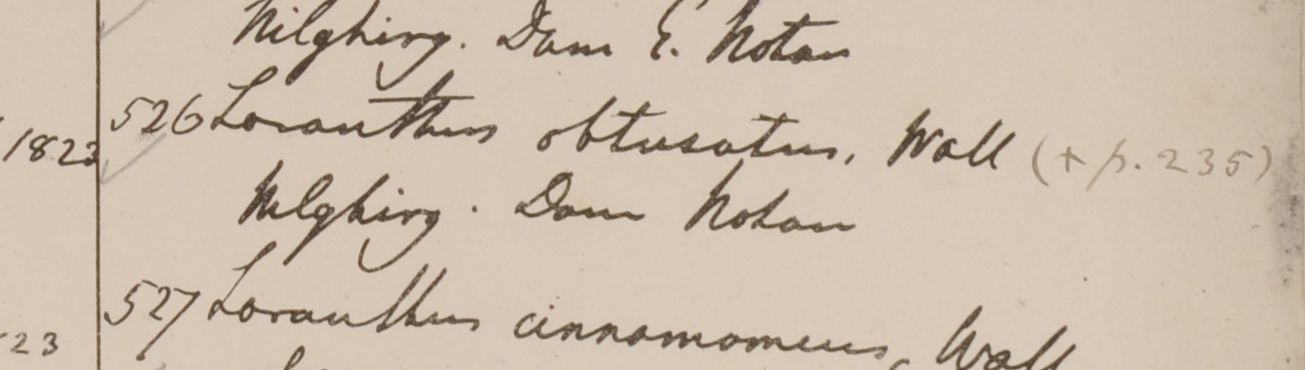 Nilghirg. Dom E. Noton
526 Loranthus obtusatus, Wall (+ p. 235)
1823
Nilghirg. Dom Noton
527 Loranthus cinnamomeus, Wall
23